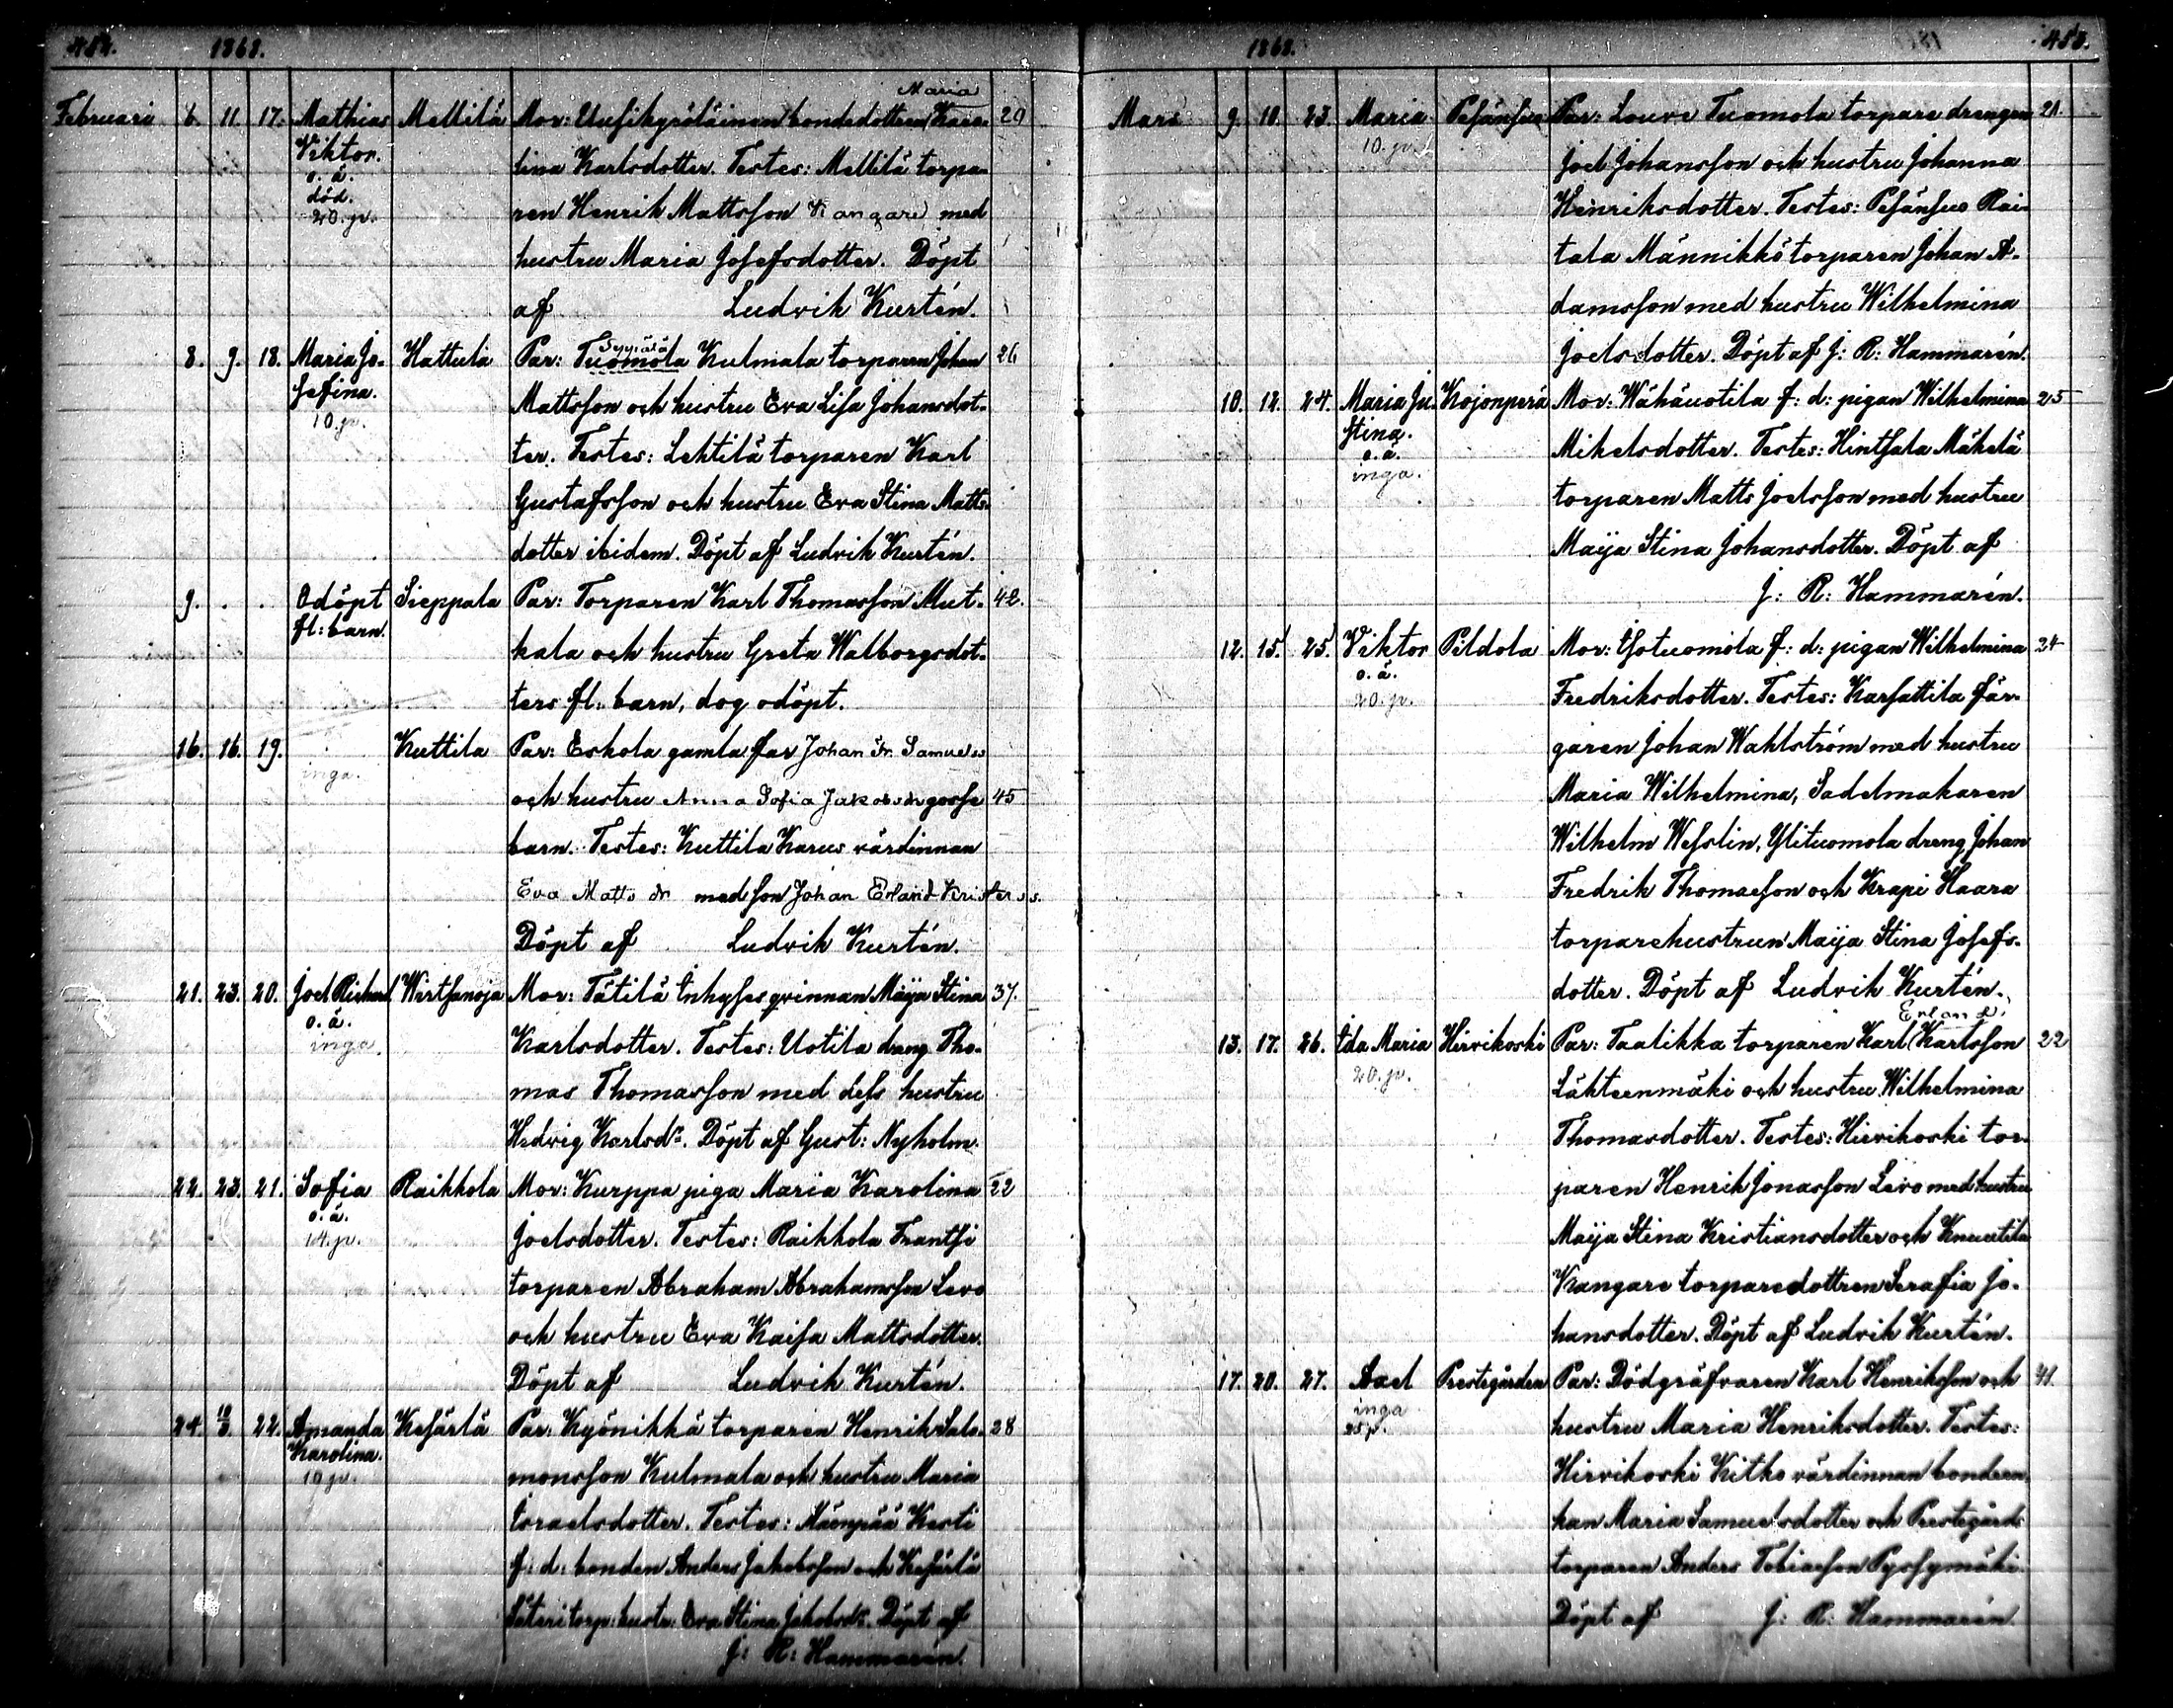 454. 1868.
Februari 6. 11. 17. Mathias Viktor. o. ä. död. 20. p. Mellilä Mor: Uusikyröläinen bondedottren Maria Karo- 29
lina Karlsdotter. Testes: Mellilä torpa-
ren Henrik Mattsson Kangare med
hustru Maria Josefsdotter. Döpt
af Ludvik Kurtén.
8. 9. 18. Maria Jo- sefina. 10. p. Hattula Par: Tuomola Kulmala torparen Johan 26
Mattsson och hustru Eva Lisa Johansdot-
ter. Testes: Lehtilä torparen Karl
Gustafsson och hustru Eva Stina Matts-
dotter ibidem. Döpt af Ludvik Kurtén.
9. . . Odöpt fl: barn. Sieppala Par: Torparen Karl Thomasson Mut- 42.
kala och hustru Greta Walborgsdot-
ters fl: barn, dog odöpt.
16. 16. 19. inga. Kuttila Par: Eskola gamla far Johan Fr. Samuels
och hustru Anna Sofia Jakobsdr gosse 45
barn. Testes: Kuttila Karus värdinnan
Eva Matts dr med son Johan Erland Kristerss.
Döpt af Ludvik Kurtén.
21. 23. 20. Joel Richard o. ä. inga. Wirtsanoja Mor: Tätilä Inhyses qvinnan Maija Stina 37.
Karlsdotter. Testes: Uotila dräng Tho-
mas Thomasson med dess hustru
Hedvig Karlsdr. Döpt af Gust: Nyholm.
22. 23. 21. Sofia o. ä. 14. p. Raikkola Mor: Kurppa piga Maria Karolina 22
Joelsdotter. Testes: Raikkola Frantsi
torparen Abraham Abrahamsson Levo
och hustru Eva Kaisa Mattsdotter.
Döpt af Ludvik Kurtén.
24. 22. Amanda Karolina. 10 p. Kesärlä Par: Kyönikkä torparen Henrik Salo- 28
monsson Kulmala och hustru Maria
Israelsdotter. Testes: Mäenpää Kerti
f: d: bonden Anders Jakobsson och Kesärlä
Säteri torp: hustr: Eva Stina Jakobsdr. Döpt af
J: R: Hammarén.
1868. 455.
Mars 9. 10. 23. Maria 10. p. Pesänsuo Par: Louve Tuomola torpare drengen 21.
Joel Johansson och hustru Johanna
Henriksdotter. Testes: Pesänsuo Rai-
tala Männikkö torparen Johan A-
damsson med hustru Wilhelmina
Joelsdotter. Döpt af J: R: Hammarén.
10. 12. 24. Maria Ju- stina. o. ä. inga. Kojonperä Mor: Wähäuotila f: d: pigan Wilhelmina 25
Mikelsdotter. Testes: Hintsala Mäkelä
torparen Matts Joelsson med hustru
Maija Stina Johansdotter. Döpt af
J: R: Hammarén.
12. 15. 25. Viktor o. ä. 20. p. Pildola Mor: Isotuomola f: d: pigan Wilhelmina 24
Fredriksdotter. Testes: Karsattila fär-
garen Johan Wahlström med hustru
Maria Wilhelmina, Sadelmakaren
Wilhelm Wesslin, Ylituomola dreng Johan
Fredrik Thomasson och Krapi Haara
torparehustrun Maija Stina Josefs-
dotter. Döpt af Ludvik Kurtén.
13. 17. 26. Ida Maria 20. p. Hirvikoski Par: Taalikka torparen Karl Erland Karlsson 22
Lähteenmäki och hustru Wilhelmina
Thomasdotter. Testes: Hirvikoski tor-
paren Henrik Jonasson Levo med hustru
Maija Stina Kristiansdotter och Knuutila
Kangare torparedottren Serafia Jo-
hansdotter. Döpt af Ludvik Kurtén.
17. 20. 27. Axel inga 25 p. Prestegården Par: Dödgräfvaren Karl Henriksson och 41.
hustru Maria Henriksdotter. Testes:
Hirvikoski Kitko värdinnan bondeen-
kan Maria Samuelsdotter och Prestegårds
torparen Anders Tobiasson Pyssymäki.
Döpt af J: R: Hammarén.